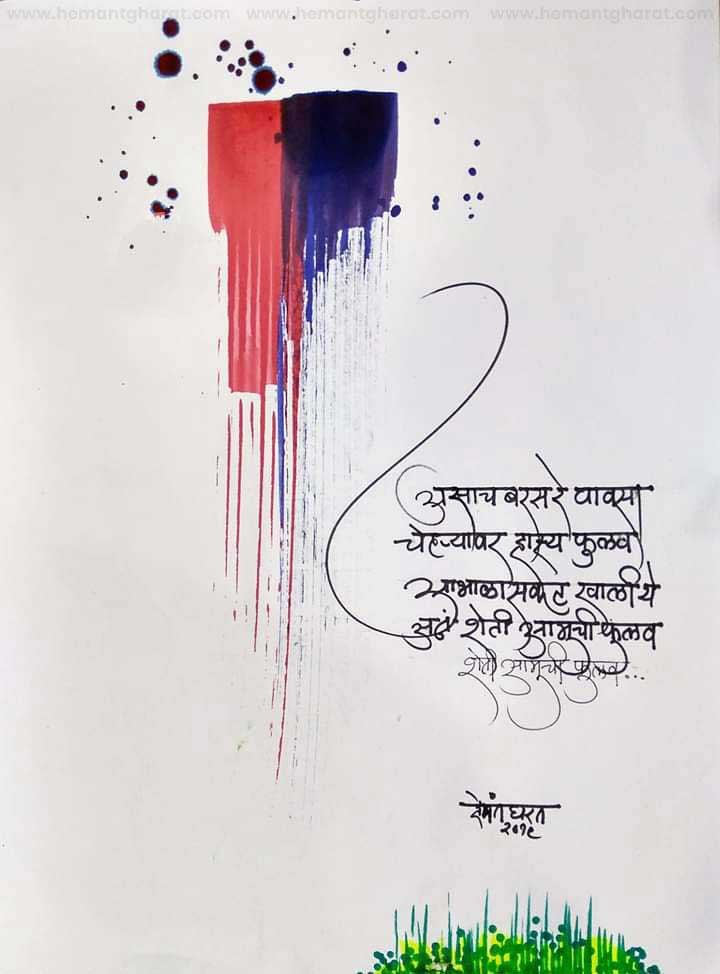 www.hemantgharat.com www.hemantgharat.com www.hemantgharat.com
असाच बरस रे पावसा
चेहऱ्यावर हास्य फुलव
आभाळासकट खाली ये
शेती आमची फुलव
शेती आमची फुलव...
हेमंत घरत
२०१९